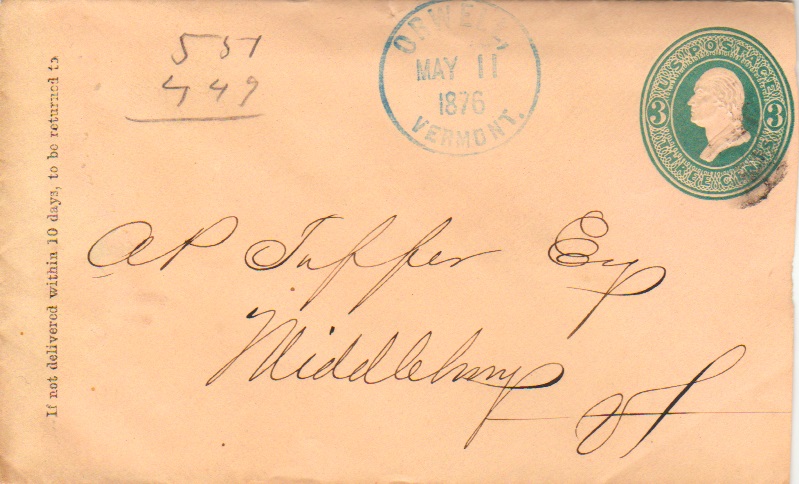 If not delivered within 10 days, to be returned to
551
449
ORWELL
MAY 11
1876
VERMONT.
U.S. POSTAGE
3 3
THREE CENTS
A P Tupper Esq
Middlebury
Vt